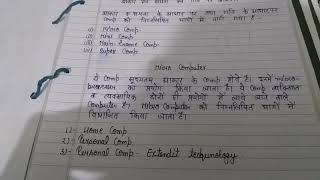 आकार व क्षमता के आधार पर तथा गति के आधार पर
Comp को निम्नलिखित भागों में बाटा गया है -
i) Micro Comp
ii) Mini Comp
iii) Main-frame Comp
iv) Super Comp
Micro Computer
ये Comp सूक्ष्मतम आकार के Comp होते हैं। इनमें micro-
processor का प्रयोग किया जाता है। ये Comp व्यक्तिगत
व व्यवसायिक दोनों ही प्रयोगों में लाये जाने वाले
Computer है। Micro Computer को निम्नलिखित भागों में
विभाजित किया जाता है।
1)- Home Comp
2)- Personal Comp
3)- Personal Comp - Extendit technology